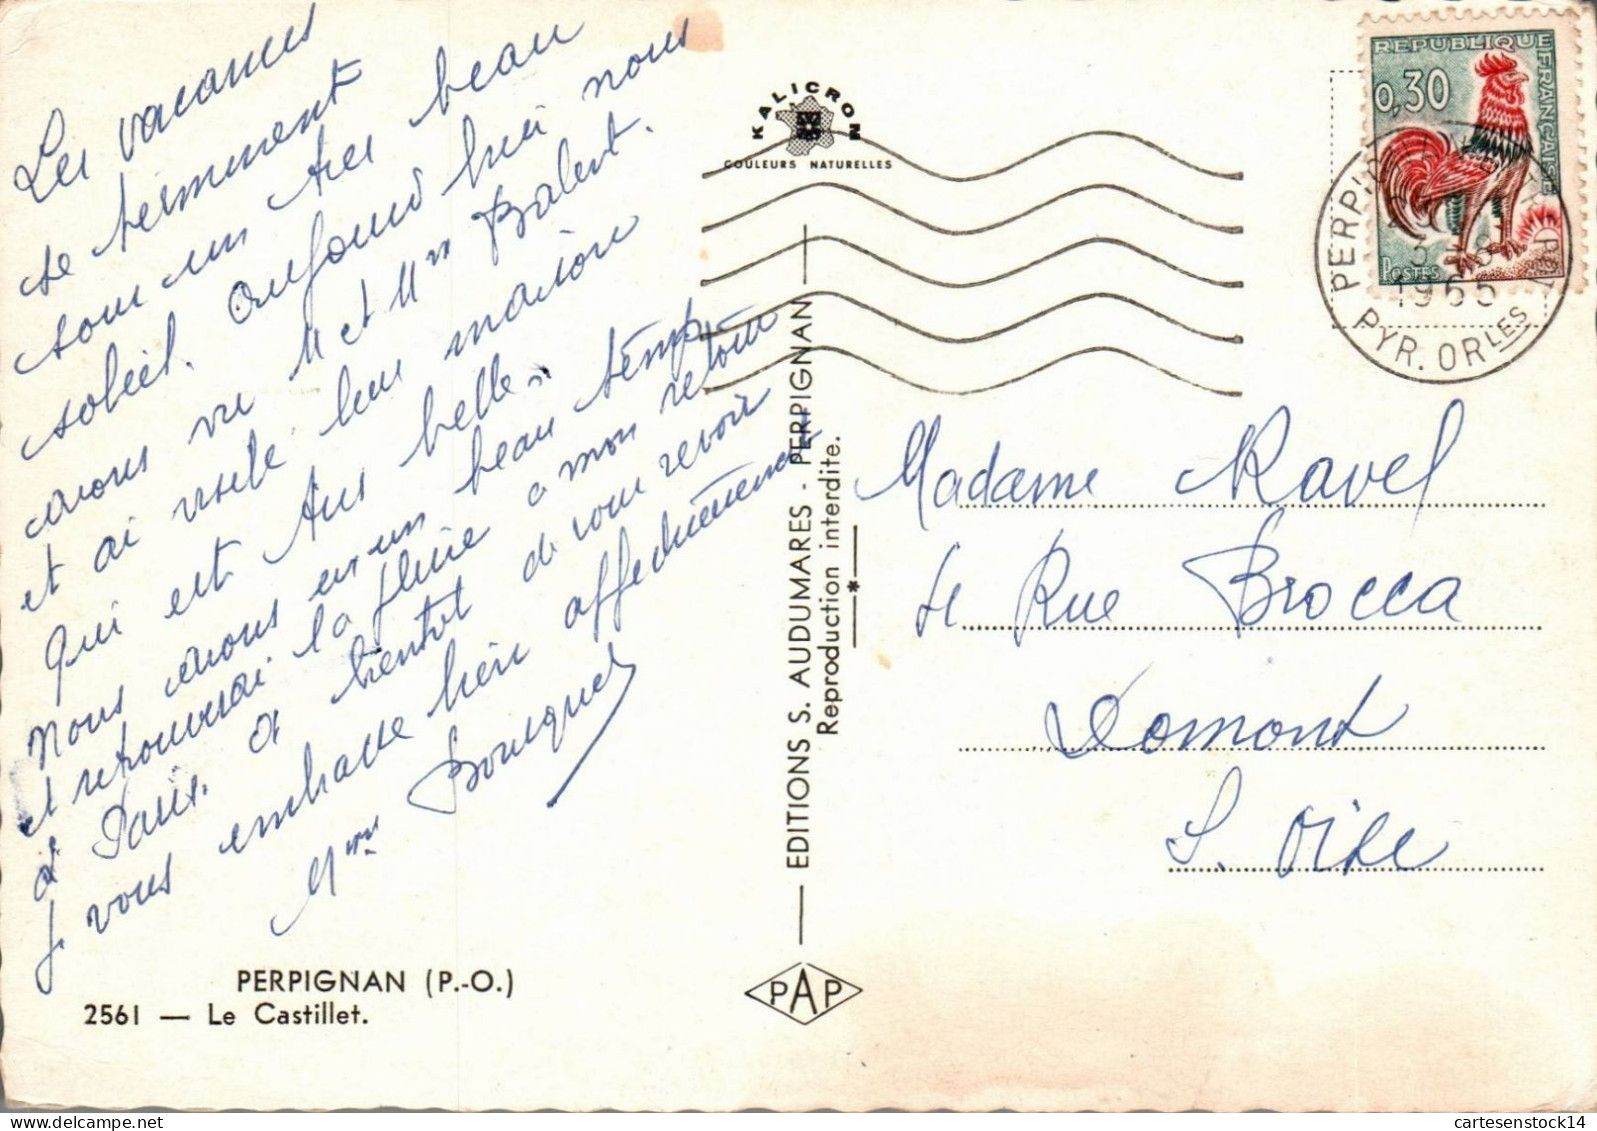 Les vacances
se terminent
sous un très beau
soleil. Aujourd'hui nous
avons vu M et Mme Balent.
et ai visité leur maison
qui est très belle.
Nous avons eu un beau temps
et retrouverai la pluie à mon retour
à Paris. à bientôt de vous revoir
je vous embrasse bien affectueusement
Mme Bousquet
PERPIGNAN (P.-O.)
2561 — Le Castillet.
KALICRON
COULEURS NATURELLES
EDITIONS S. AUDUMARES - PERPIGNAN
Reproduction interdite.
PAP
REPUBLIQUE FRANÇAISE
0,30
POSTES
PERPIGNAN
1965
PYR. ORLES
Madame Ravel
Rue Brocca
Domont
S. Oise
cartesenstock14